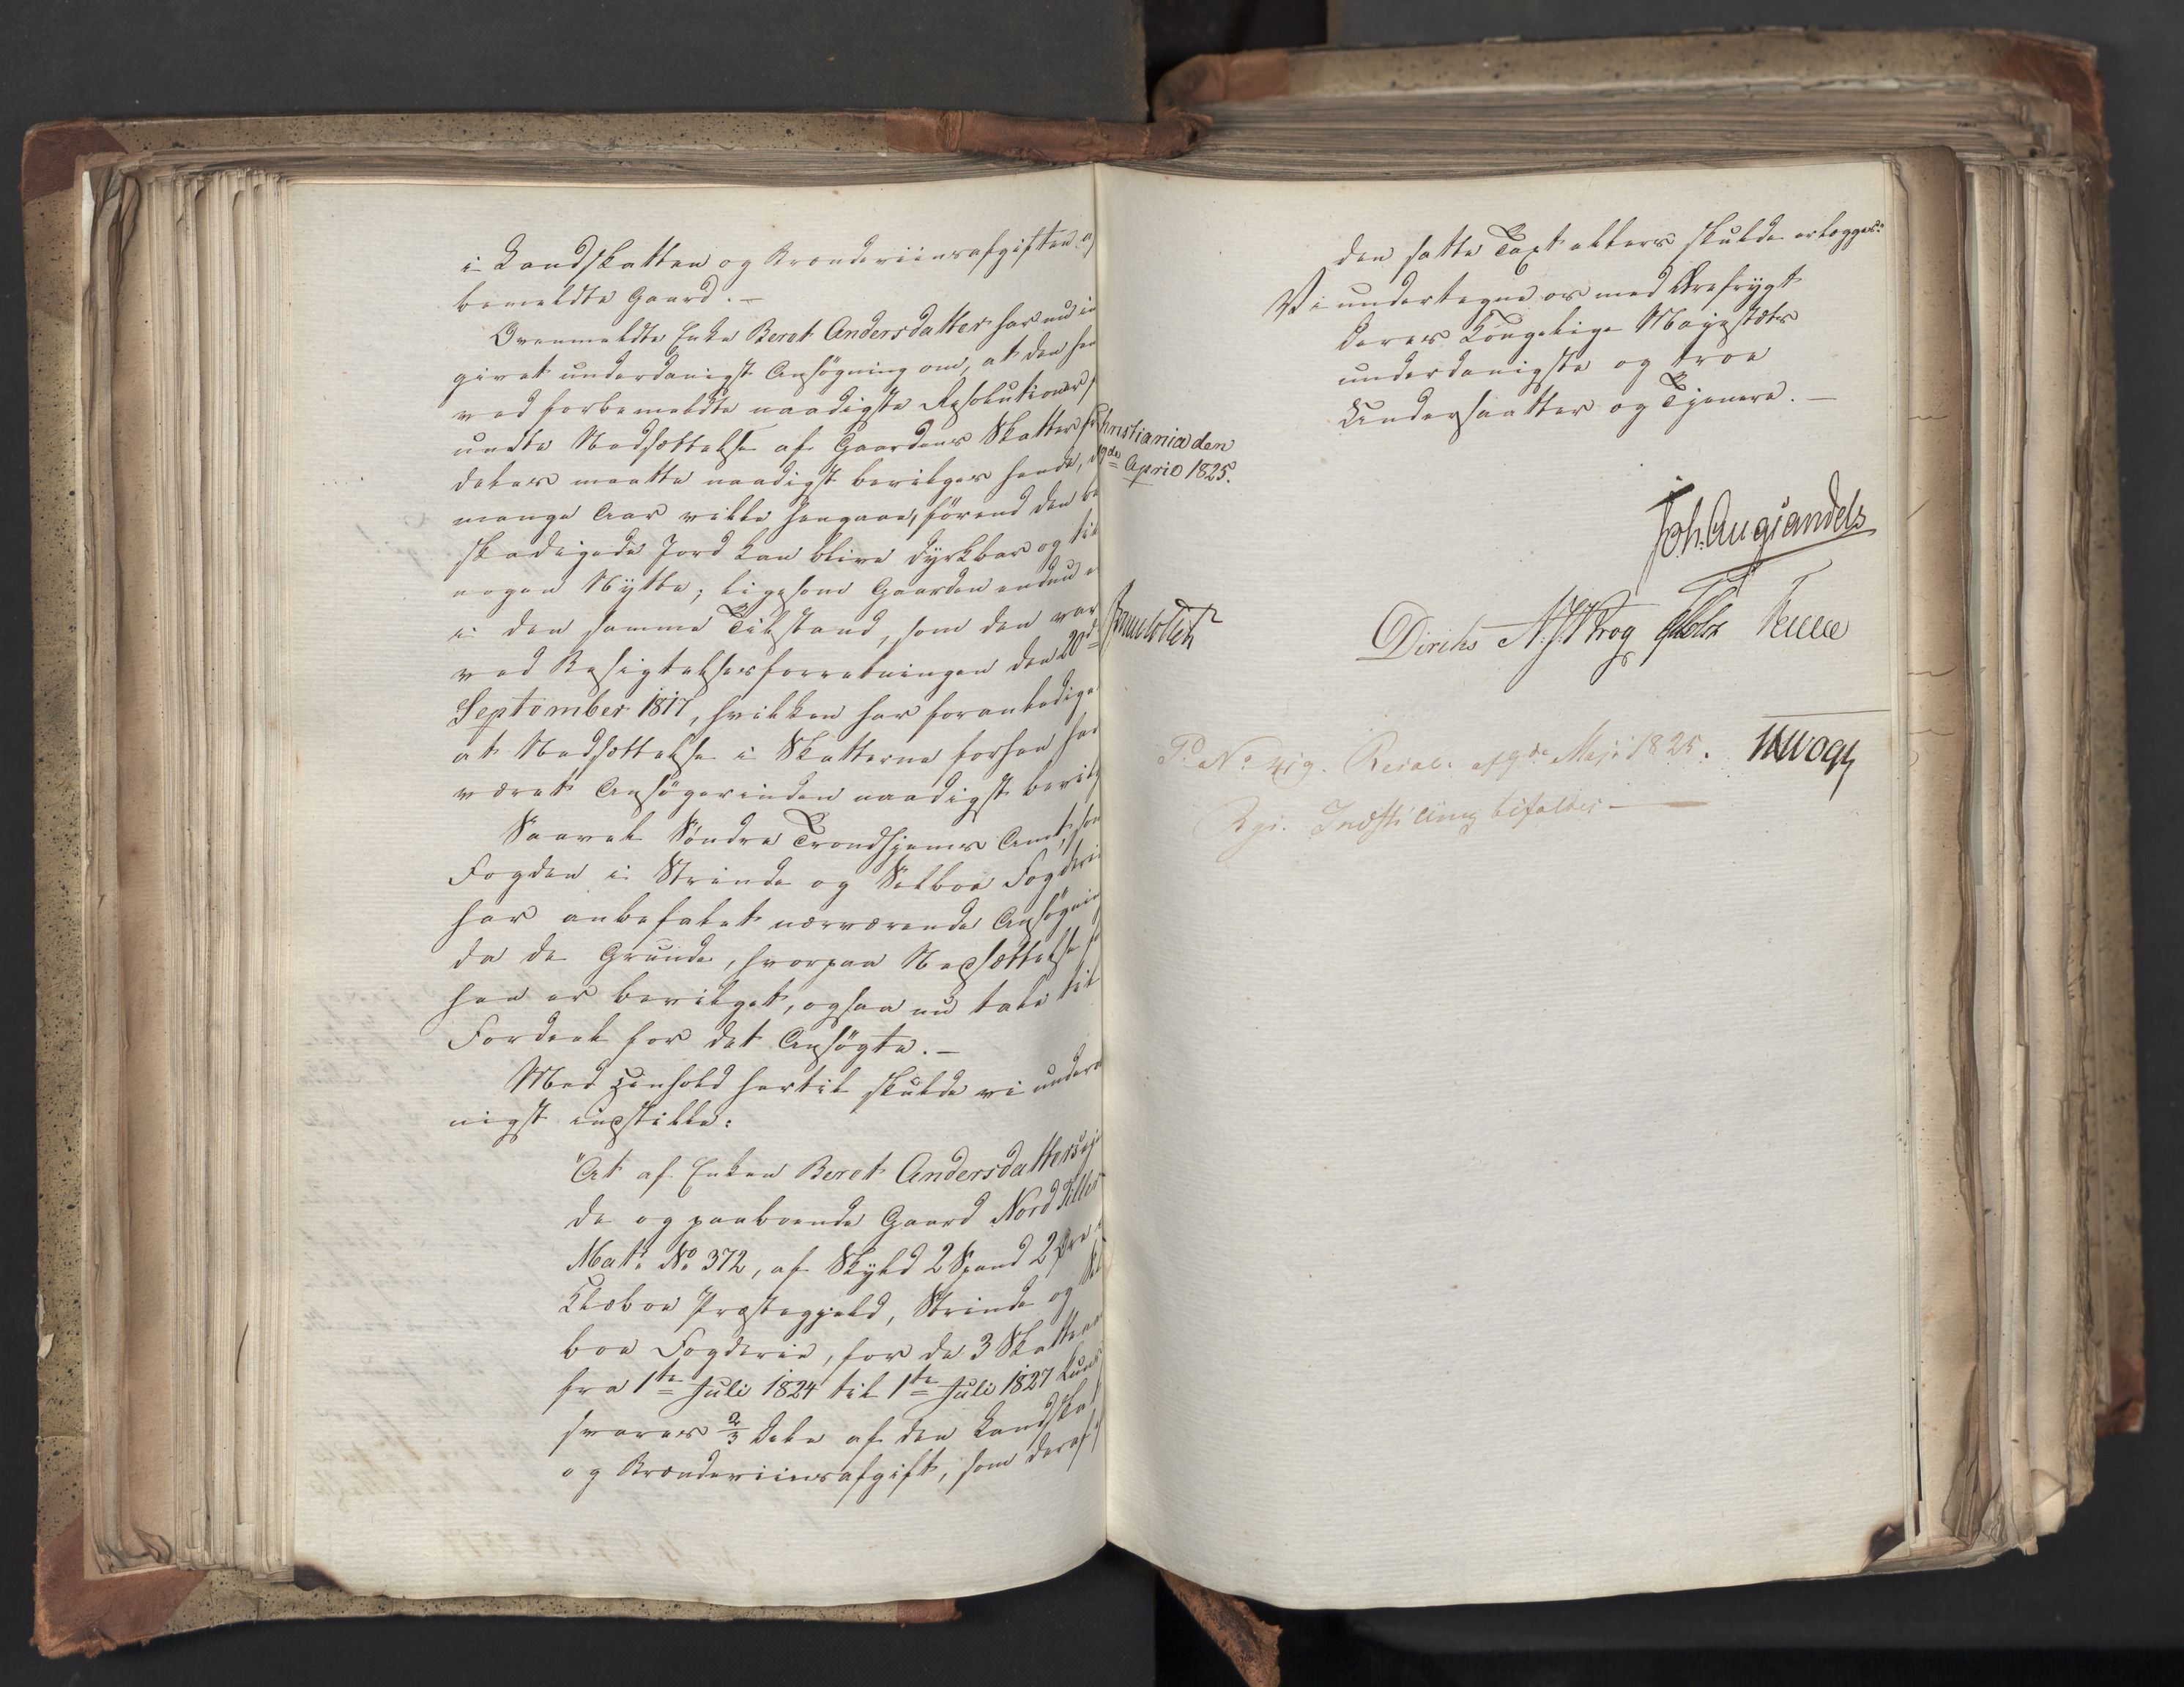 i Landskatten og Brændeviinsafgiften af
bemeldte Gaard. —
Ovenmeldte Enke Beret Andersdatter har nu in
givet underdanigst Ansøgning om, at den hen
ved forbemeldte naadigste Resolutioner
undte Nedsættelse af Gaardens Skatter fr
deles maatte naadigst bevilges hende, da
mange Aar ville hengaae, førend den be
skadigede Jord kan blive dyrkbar og til
nogen Nytte; ligesom Gaarden endnu er
i den samme Tilstand, som den var
ved Besigtelsesforretningen den 20de
September 1817, hvilken har foranlediget
at Nedsættelse i Skatterne forhen har
været Ansøgerinden naadigst bevilg
Saavel Søndre Trondhjems Amt, som
Fogden i Strinde og Selboe Fogderie
har anbefalet nærværende Ansøgning
da de Grunde, hvorpaa Nedsættelse for
hen er bevilget, ogsaa nu tale til
Fordeel for det Ansøgte. —
Med Henhold hertil skulde vi underda
nigst indstille:
"At af Enken Beret Andersdatters eje
de og paaboende Gaard Nord Tiller
Matr. No 372, af Skyld 2 Spand 2 Øre i
Klæboe Præstegjeld, Strinde og Sel
boe Fogderie, for de 3 Skatteaar
fra 1te Juli 1824 til 1te Juli 1827 kun
svares 2/3 Dele af den Landskat
og Brændeviinsafgift, som deraf
den satte Taxt ellers skulde erlægges."
Vi undertegne os med Ærefrygt
Deres Kongelige Majestæts
underdanigste og troe
Undersaatter og Tjenere. —
Christiania den
19de April 1825.
Joh. Aug Sandels
Diriks N. J. Krog
P. No 419. Resol. af 9de Maji 1825.
Rgs. Indstilling bifaldes. —